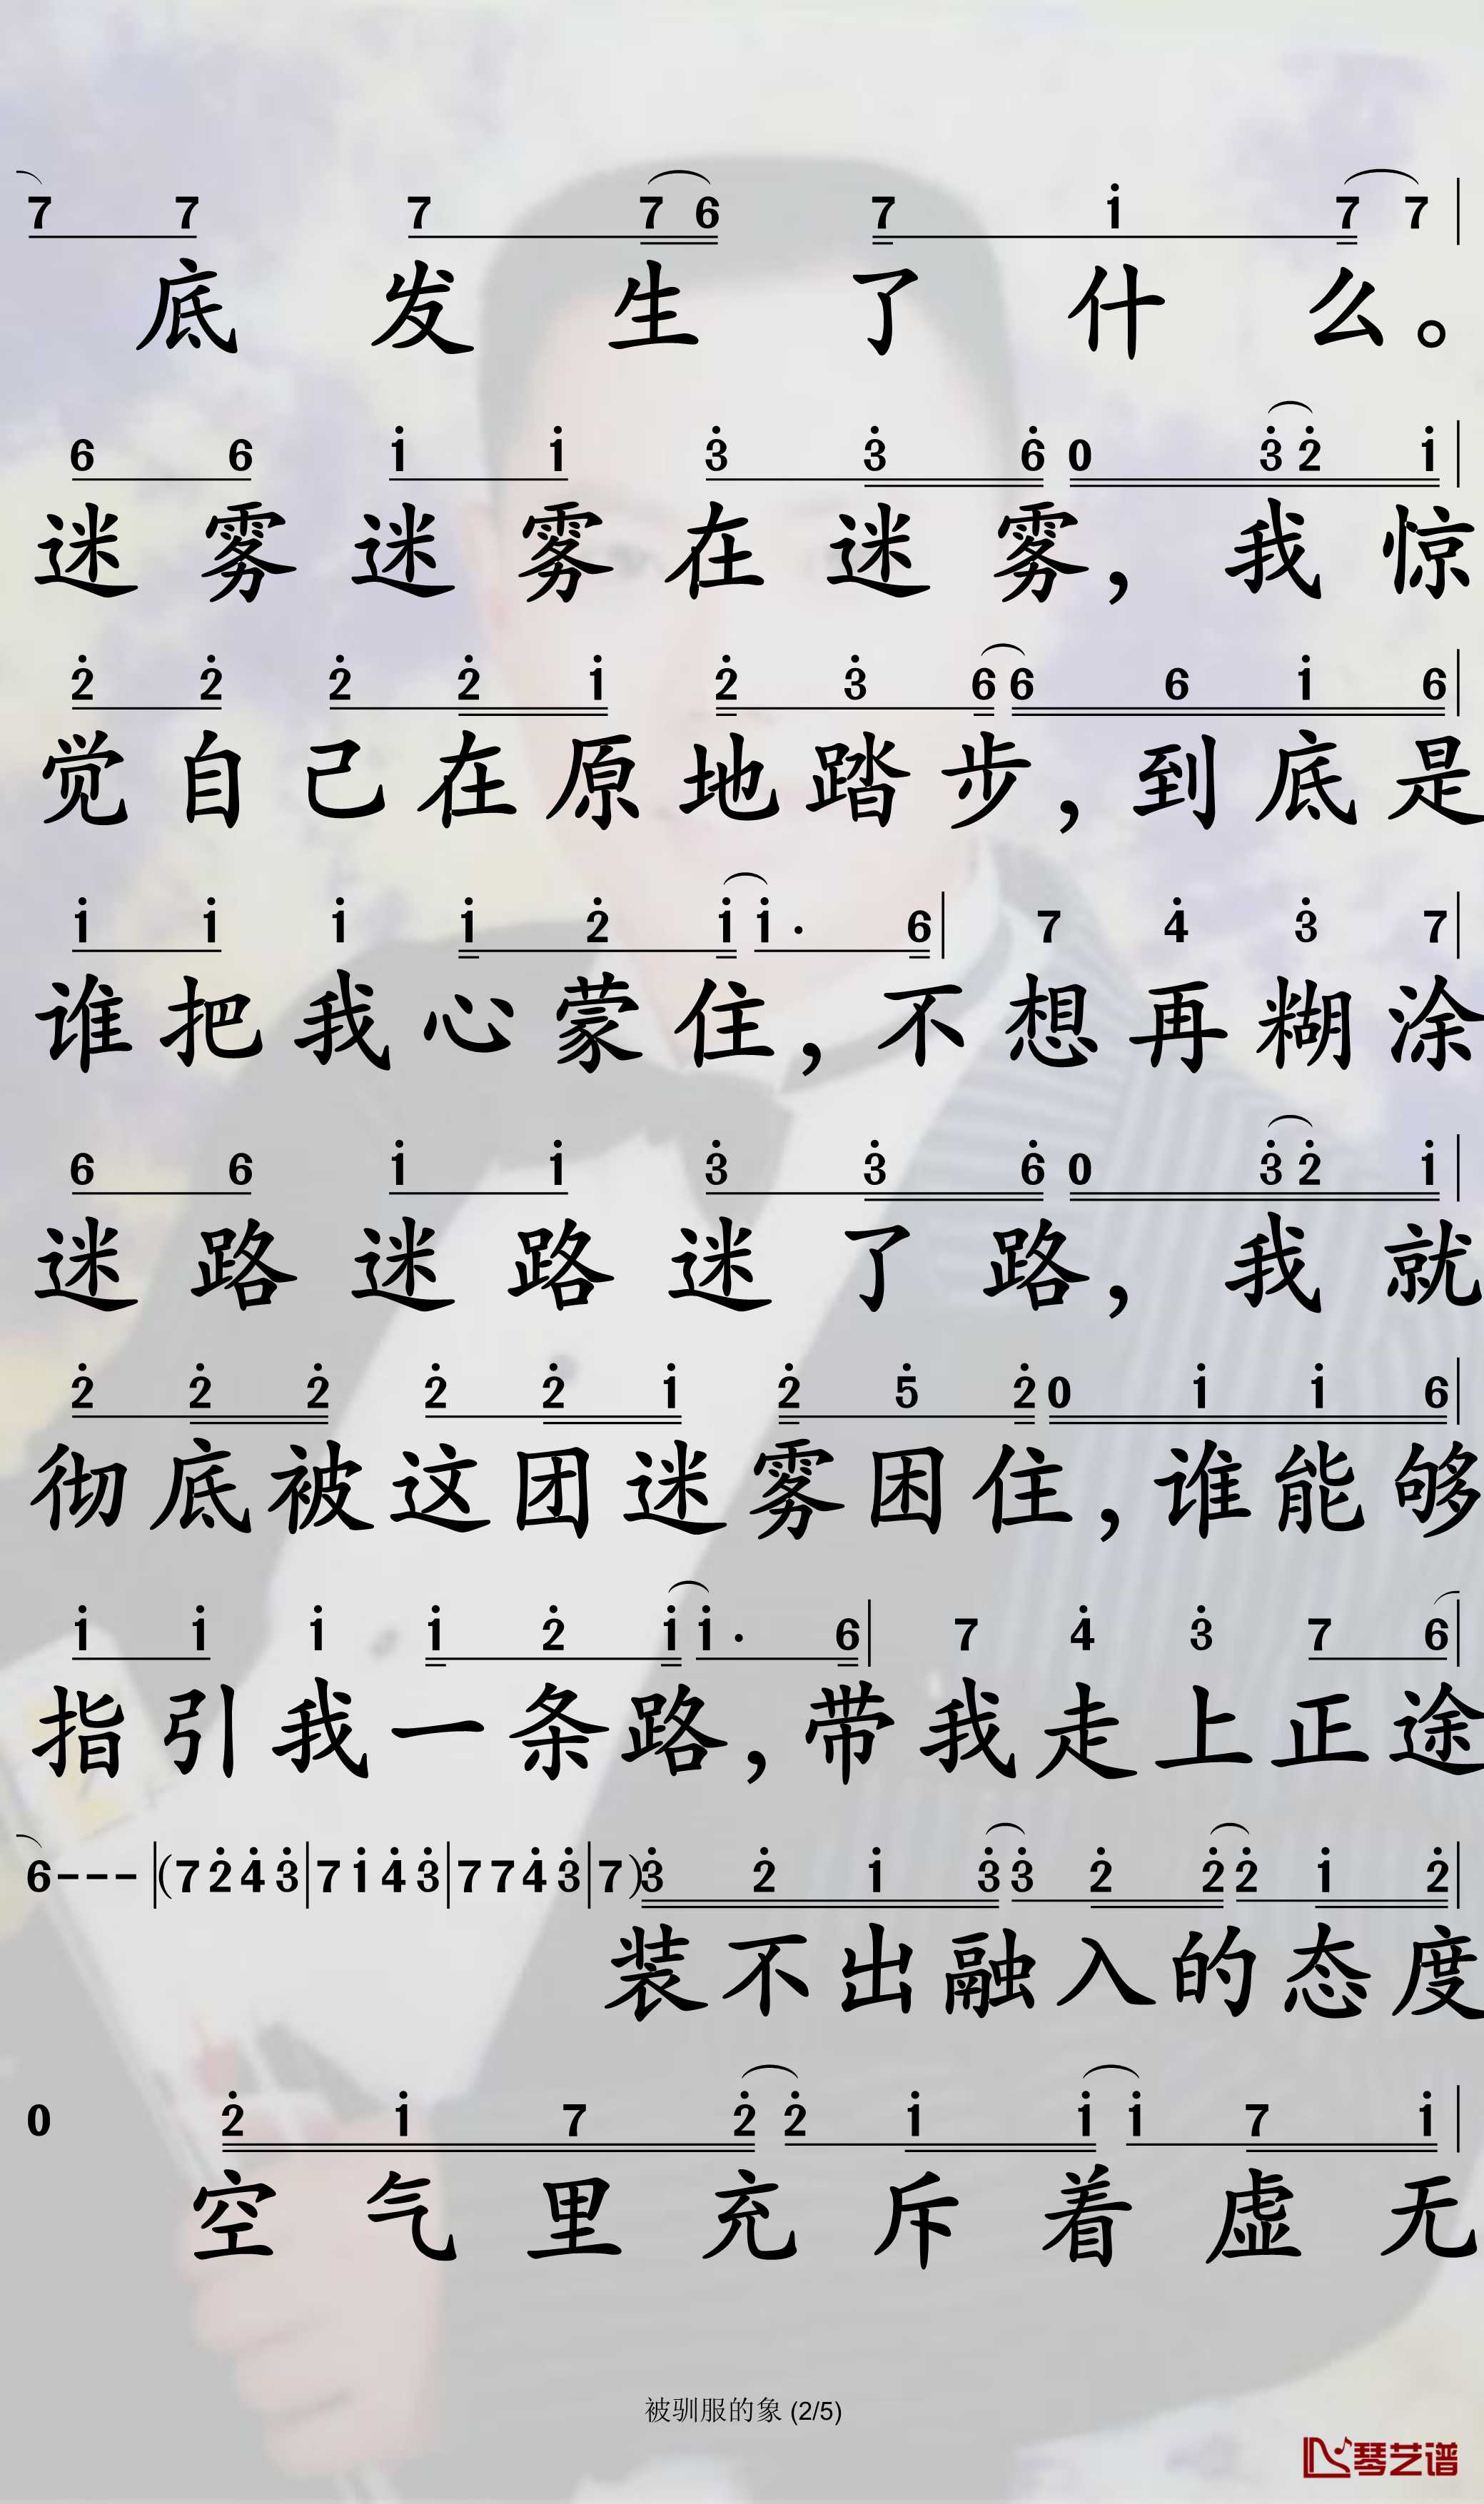 7 7 7 7 6 7 i 7 7
底 发 生 了 什 么。
6 6 i i 3 3 6 0 3 2 i
迷 雾 迷 雾 在 迷 雾， 我 惊
2 2 2 2 i 2 3 6 6 6 i 6
觉 自 己 在 原 地 踏 步，到 底 是
i i i i 2 i i· 6 7 4 3 7
谁 把 我 心 蒙 住，不 想 再 糊 涂
6 6 i i 3 3 6 0 3 2 i
迷 路 迷 路 迷 了 路， 我 就
2 2 2 2 2 i 2 5 2 0 i i 6
彻 底 被 这 团 迷 雾 困 住，谁 能 够
i i i i 2 i i· 6 7 4 3 7 6
指 引 我 一 条 路，带 我 走 上 正 途
6 - - - (7 2 4 3 7 i 4 3 7 7 4 3 7) 3 2 i 3 3 2 2 2 i 2
装 不 出 融 入 的 态 度
0 2 i 7 2 2 i i i 7 i
空 气 里 充 斥 着 虚 无
被驯服的象 (2/5)
琴艺谱